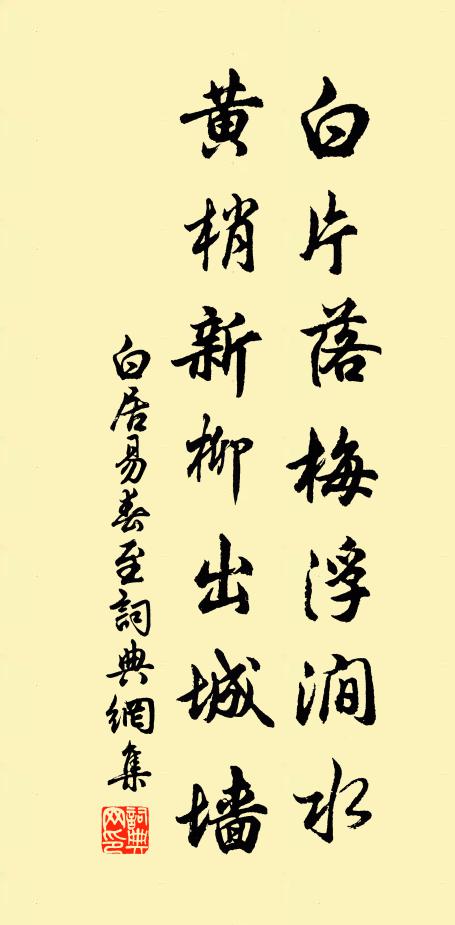 白片落梅浮涧水
黄梢新柳出城墙
白居易春至詞典網集
詞典网印